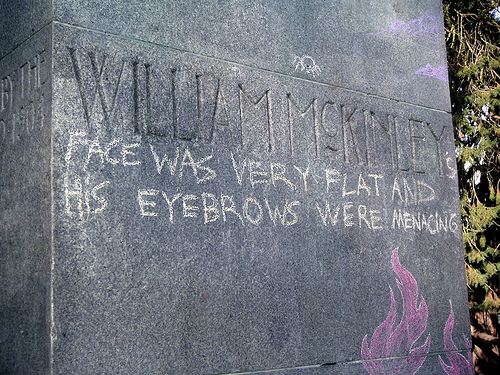 WILLIAM McKINLEY's
FACE WAS VERY FLAT AND
HIS EYEBROWS WERE MENACING
BY THE